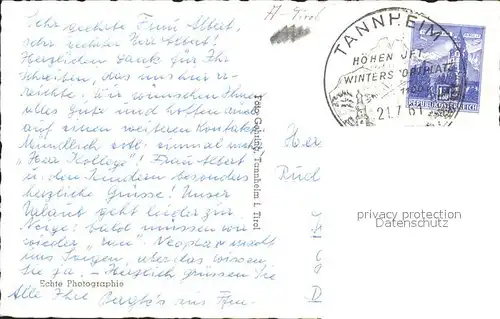 Sehr geehrte Frau Albert,
sehr geehrter Herr Albert!
Herzlichen Dank für Ihr
Schreiben, das uns hier er-
reichte. Wir wünschen Ihnen
alles Gute und hoffen auch
auf einen weiteren Kontakt.
Mündlich evtl. einmal mehr,
"Herr Kollege"! Frau Albert
u. den Kindern besonders
herzliche Grüsse! Unser
Urlaub geht leider zur
Neige; bald müssen wir
wieder "ran".
uns Sorgen, aber das wissen
Sie ja. – Herzlich grüssen Sie
Alle Ihre
Echte Photographie
Tannheim i. Tirol
A-Tirol
TANNHEIM
HÖHENLUFT-
WINTERSPORTPLATZ
21.7.61
REPUBLIK ÖSTERREICH
Her
privacy protection
Datenschutz